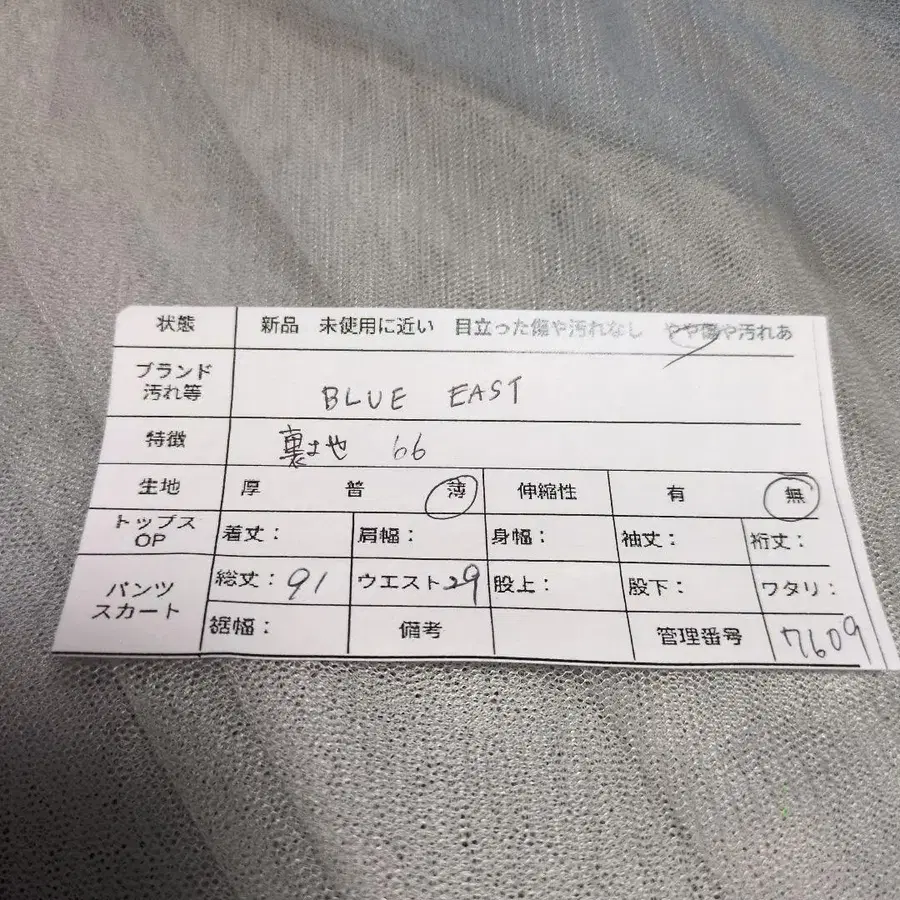 状態 新品 未使用に近い 目立った傷や汚れなし やや傷や汚れあ
ブランド
汚れ等 BLUE EAST
特徴 裏地 66
生地 厚 普 薄 伸縮性 有 無
トップス
OP 着丈： 肩幅： 身幅： 袖丈： 裄丈：
パンツ
スカート 総丈：91 ウエスト29 股上： 股下： ワタリ：
裾幅： 備考 管理番号 7609